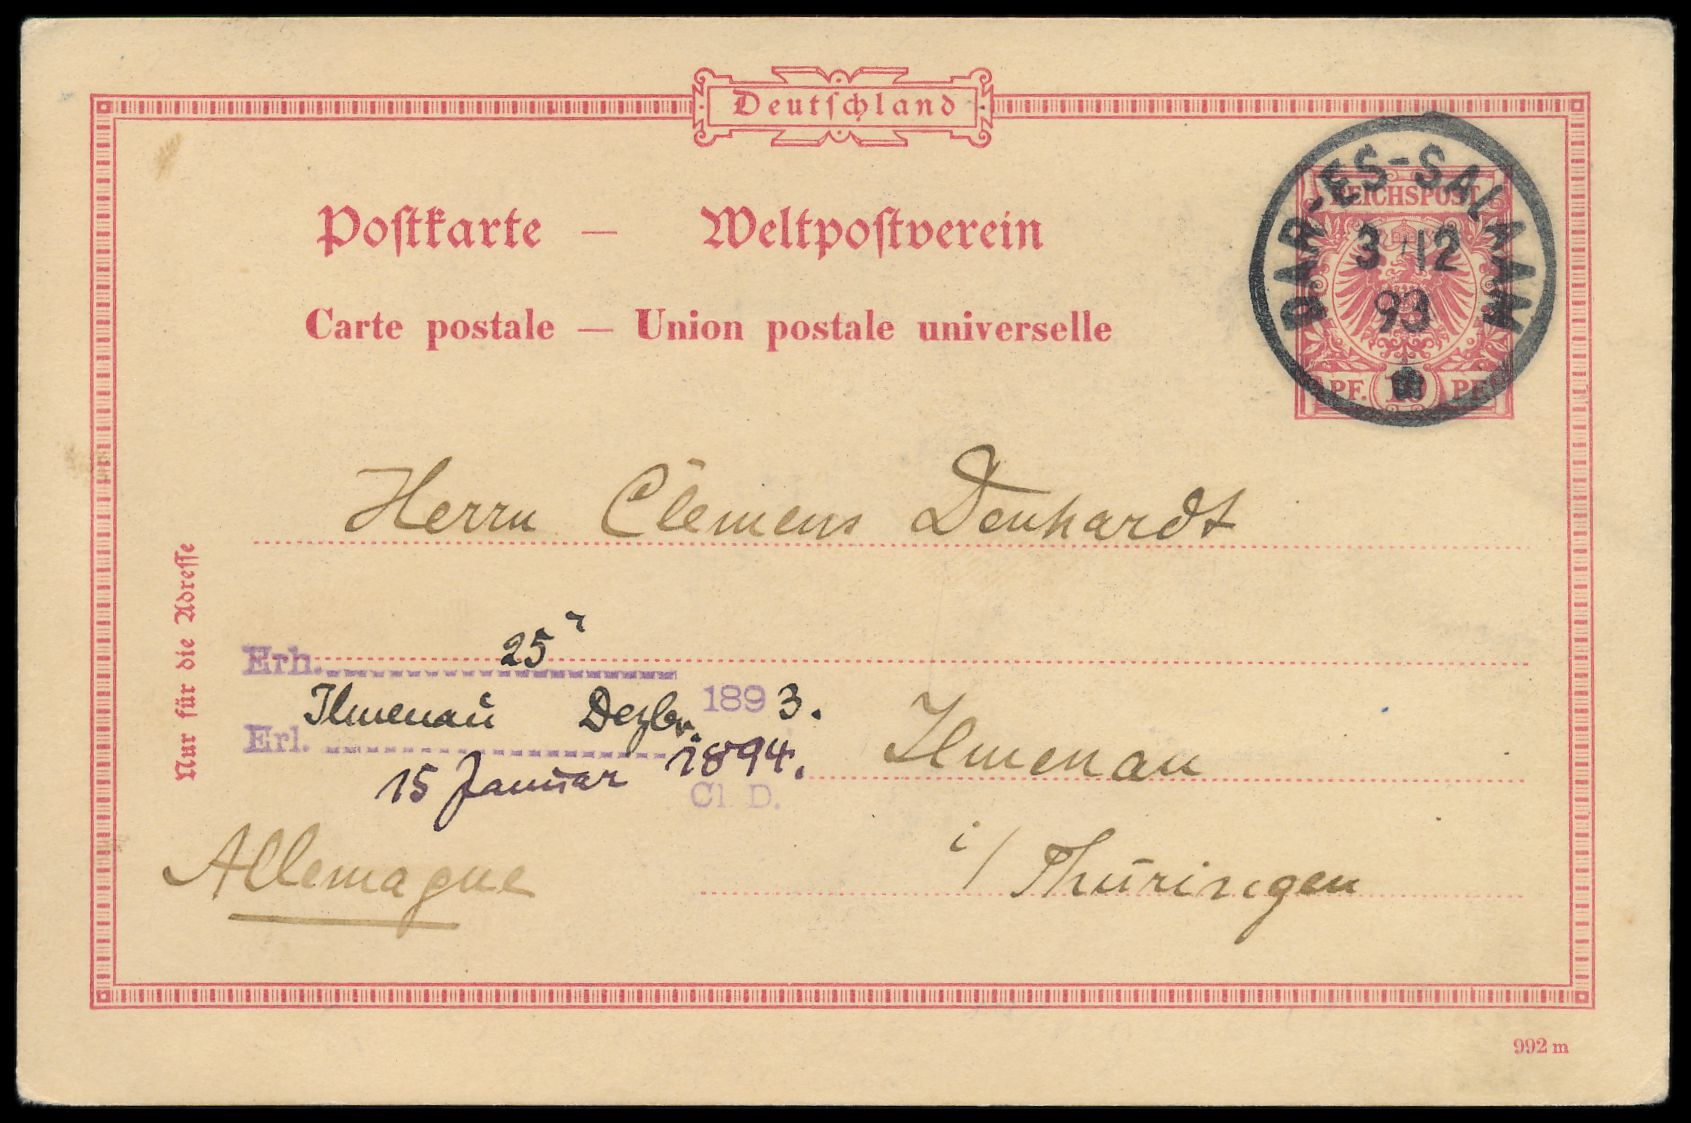 Deutschland
Postkarte — Weltpostverein
Carte postale — Union postale universelle
DAR-ES-SALAAM
3 12
93
REICHSPOST
PF. 10 PF.
Herrn Clemens Denhardt
Nur für die Adresse
Erh. 25
Ilmenau Dezbr. 1893.
Erl.
15 Januar 1894.
Cl. D.
Ilmenau
i/ Thüringen
Allemagne
992 m